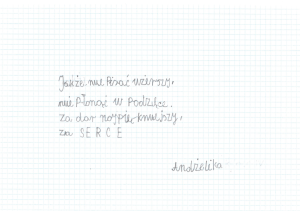 Jakże nie Pisać wierszy,
nie Płonąć w Podzięce.
za dar najpiękniejszy,
za SERCE
Andżelika